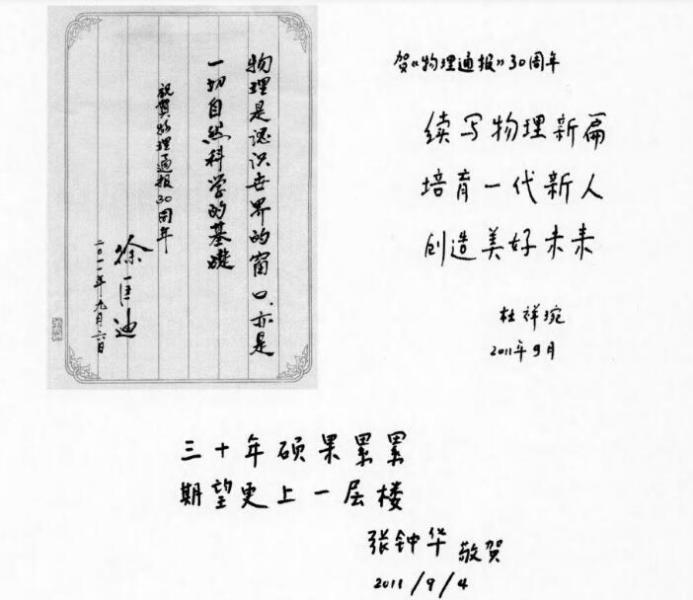 物理是认识世界的窗口,亦是
一切自然科学的基礎
祝贺物理通报30周年
徐匡迪
二〇一一年九月六日
贺《物理通报》30周年
续写物理新篇
培育一代新人
创造美好未来
杜祥琬
2011年9月
三十年硕果累累
期望更上一层楼
张钟华 敬贺
2011/9/4